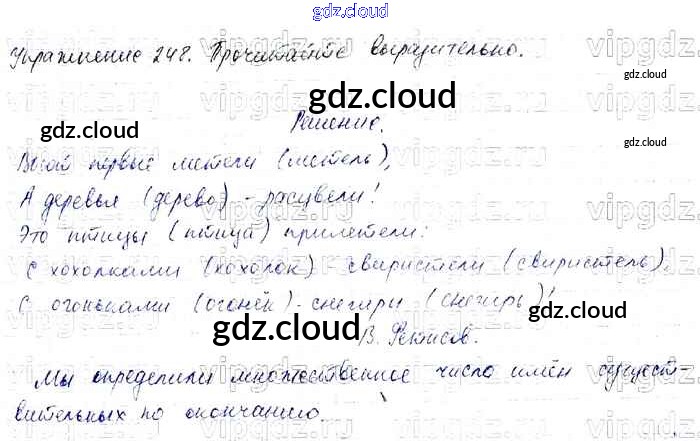 gdz.cloud
Упражнение 248. Прочитайте выразительно.
gdz.cloud
gdz.cloud
gdz.cloud
gdz.cloud
Решение.
Воют первые метели (метель),
А деревья (дерево) - расцвели!
Это птицы (птица) прилетели:
С хохолками (хохолок) - свиристели (свиристель),
С огоньками (огонёк) - снегири (снегирь)!
gdz.cloud
gdz.cloud
В. Фетисов.
Мы определили множественное число имён сущест-
вительных по окончанию.